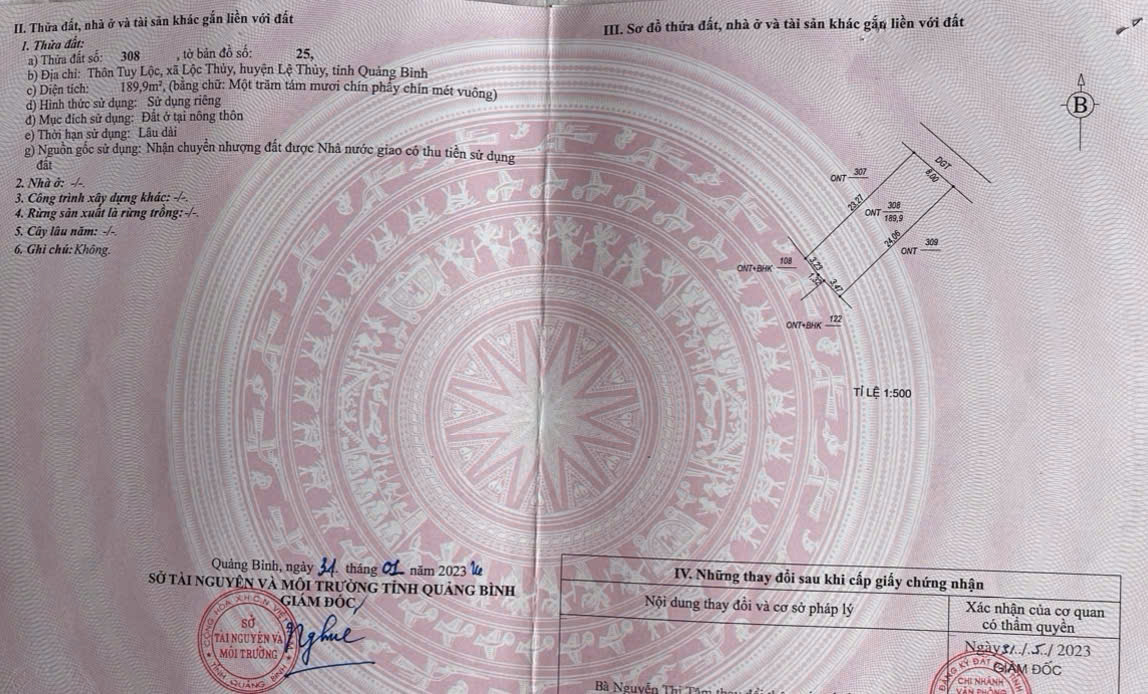 II. Thửa đất, nhà ở và tài sản khác gắn liền với đất
1. Thửa đất:
a) Thửa đất số: 308 , tờ bản đồ số: 25,
b) Địa chỉ: Thôn Tuy Lộc, xã Lộc Thủy, huyện Lệ Thủy, tỉnh Quảng Bình
c) Diện tích: 189,9m², (bằng chữ: Một trăm tám mươi chín phẩy chín mét vuông)
d) Hình thức sử dụng: Sử dụng riêng
đ) Mục đích sử dụng: Đất ở tại nông thôn
e) Thời hạn sử dụng: Lâu dài
g) Nguồn gốc sử dụng: Nhận chuyển nhượng đất được Nhà nước giao có thu tiền sử dụng
đất
2. Nhà ở: -/-.
3. Công trình xây dựng khác: -/-.
4. Rừng sản xuất là rừng trồng: -/-.
5. Cây lâu năm: -/-.
6. Ghi chú: Không.
Quảng Bình, ngày 31 tháng 01 năm 2023
SỞ TÀI NGUYÊN VÀ MÔI TRƯỜNG TỈNH QUẢNG BÌNH
GIÁM ĐỐC
SỞ
TÀI NGUYÊN VÀ
MÔI TRƯỜNG
III. Sơ đồ thửa đất, nhà ở và tài sản khác gắn liền với đất
B
DGT
8,00
ONT 307
23,27
ONT 308
189,9
24,06
ONT 309
ONT+BHK 108
3,23
1,32
3,47
ONT+BHK 122
TỈ LỆ 1:500
IV. Những thay đổi sau khi cấp giấy chứng nhận
Nội dung thay đổi và cơ sở pháp lý
Xác nhận của cơ quan
có thẩm quyền
Ngày 31/5/2023
GIÁM ĐỐC
CHI NHÁNH
VĂN PHÒNG
Bà Nguyễn Thị Tâm thay đổi